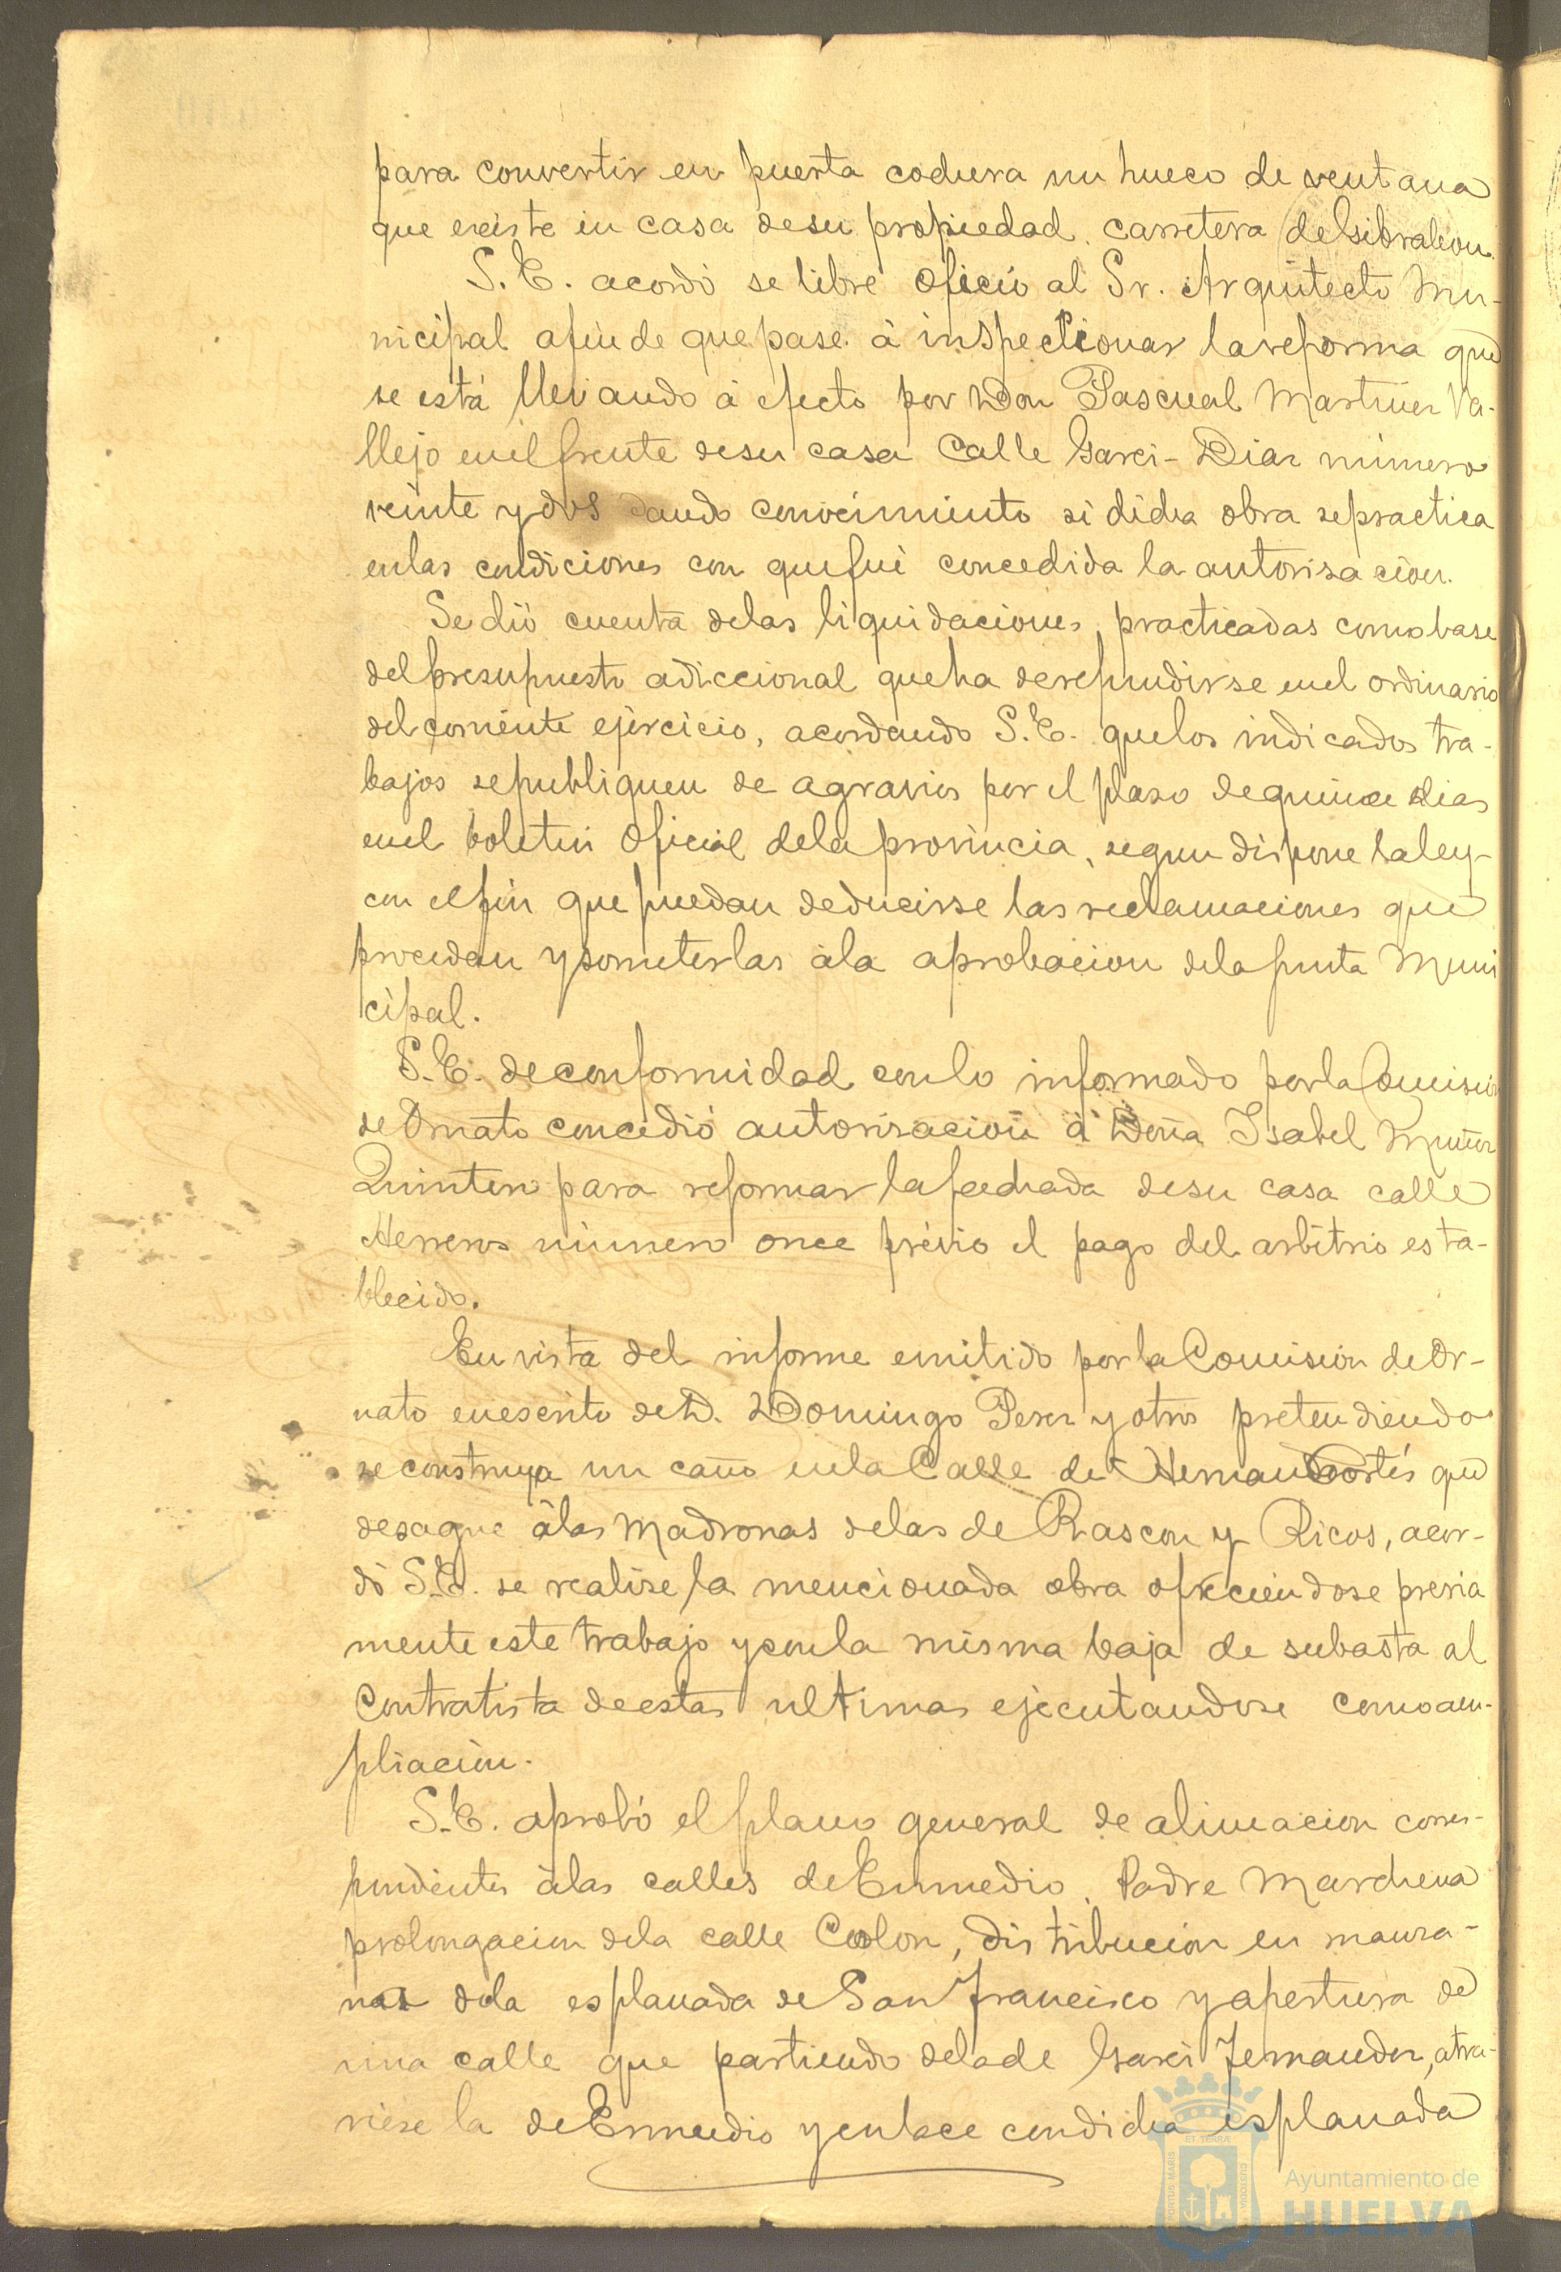 para convertir en puerta cochera un hueco de ventana
que existe en casa de su propiedad carretera de Gibraleon.
S. E. acordó se libre oficio al Sr. Arquitecto Mu-
nicipal afin de que pase á inspectionar la reforma que
se está llevando á efecto por Don Pascual Martinez Va-
llejo en el frente de su casa Calle Garci-Diaz número
veinte y dos dando conocimiento si dicha obra se practica
en las condiciones con que fué concedida la autorisacion.
Se dió cuenta de las liquidaciones practicadas como base
del presupuesto adiccional que ha de refundirse en el ordinario
del corriente ejercicio, acordando S. E. que los indicados tra-
bajos se publiquen de agravios por el plaso de quince dias
en el boletin oficial de la provincia, segun dispone la ley-
con el fin que puedan deducirse las reclamaciones que
procedan y someterlas á la aprobacion de la junta Muni
cipal.
S. E. de conformidad con lo informado por la Comision
de Ornato concedió autorisacion á Doña Isabel Muñoz
Quintero para reformar la fachada de su casa calle
Herreros número once prévio el pago del arbitrio esta-
blecido.
En vista del informe emitido por la Comision de Or-
nato en escrito de D. Domingo Perez y otros pretendiendo
se construya un caño en la Calle de Hernan Cortés que
desague á las madronas de las de Rascon y Ricos, acor-
dó S. E. se realise la mencionada obra ofreciendose previa
mente este trabajo y con la misma baja de subasta al
Contratista de estas ultimas ejecutandose como am-
pliacion.
S. E. aprobó el plano general de alineacion corres-
pondientes á las calles de Enmedio, Padre Marchena
prolongacion de la calle Colon, distribucion en manza-
nas de la esplanada de San Francisco y apertura de
una calle que partiendo de la de Garci Fernandez, atra-
viese la de Enmedio y enlace con dicha esplanada
PORTUS MARIS
ET TERRÆ
CUSTODIA
Ayuntamiento de
HUELVA